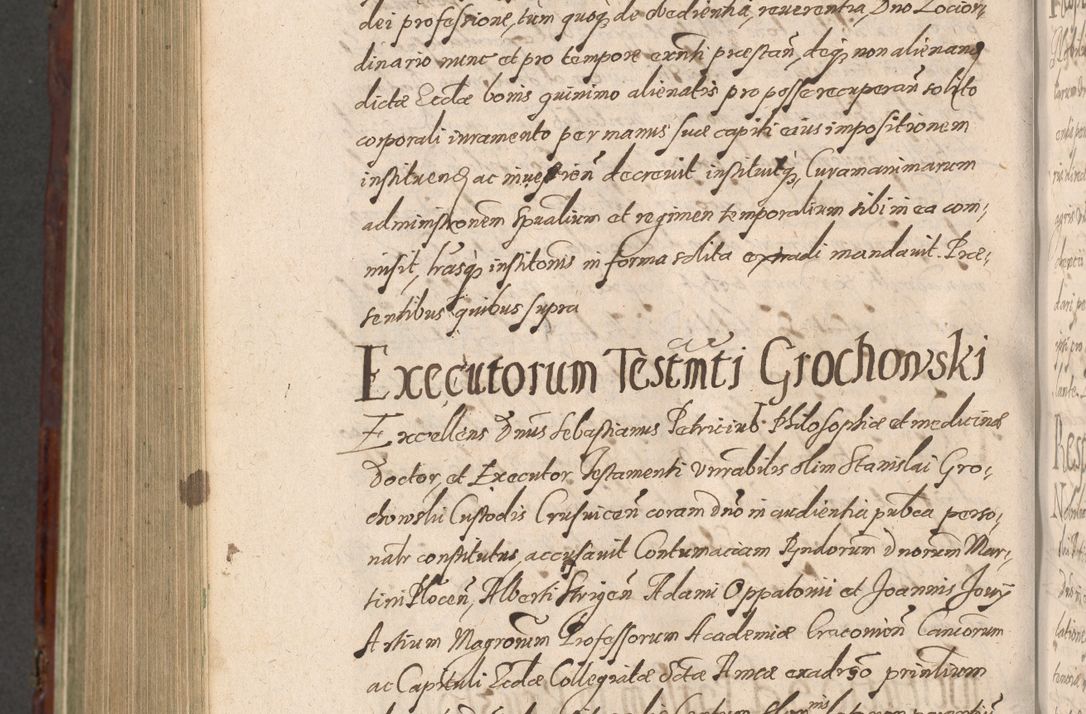 dei professione, tum quoq de obedientia, reverentia, Dno Locior,
dinario nunc et pro tempore exnti præstañ, deq non alienand
dictæ Ecclæ bonis quinimo alienatis pro posse recuperañ solito
corporali iuramento per manus suæ capiti eius impositionem
instituend ac investieñ decrevit instituitq, Curam animarum
administronem spualium et regimen temporalium sibi in ea com,
misit, lrasq institonis in forma solita extradi mandavit. Præ,
sentibus quibus supra
Executorum Testmti Grochowski
Excellens Dnus Sebastianus Petricius Philosophiæ et medicinæ
Doctor, et Executor Testamenti Vnrabilis olim Stanislai Gro,
chowski Custodis Crusviceñ coram Dno in audientia publca perso,
nalr constitutus, accusavit Contumaciam Rndorum Dnorum Mar,
tini Ploceñ, Alberti Strigeñ Adami Oppatovii et Joannis Jovij
Artium Magrorum Professorum Academiæ Cracovieñ Cancorum
ac Capituli Ecclæ Collegiatæ Sctæ Annæ ex adrso prinlium